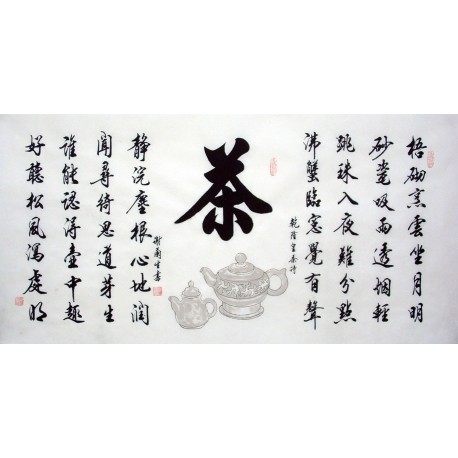 梧砌烹雲坐月明
砂瓷吸雨透烟輕
跳珠入夜難分點
沸蟹臨窗覺有聲
乾隆皇茶诗
茶
静浣塵根心地潤
閒尋綺思道芽生
誰能認得壺中趣
好聽松風瀉處明
生書